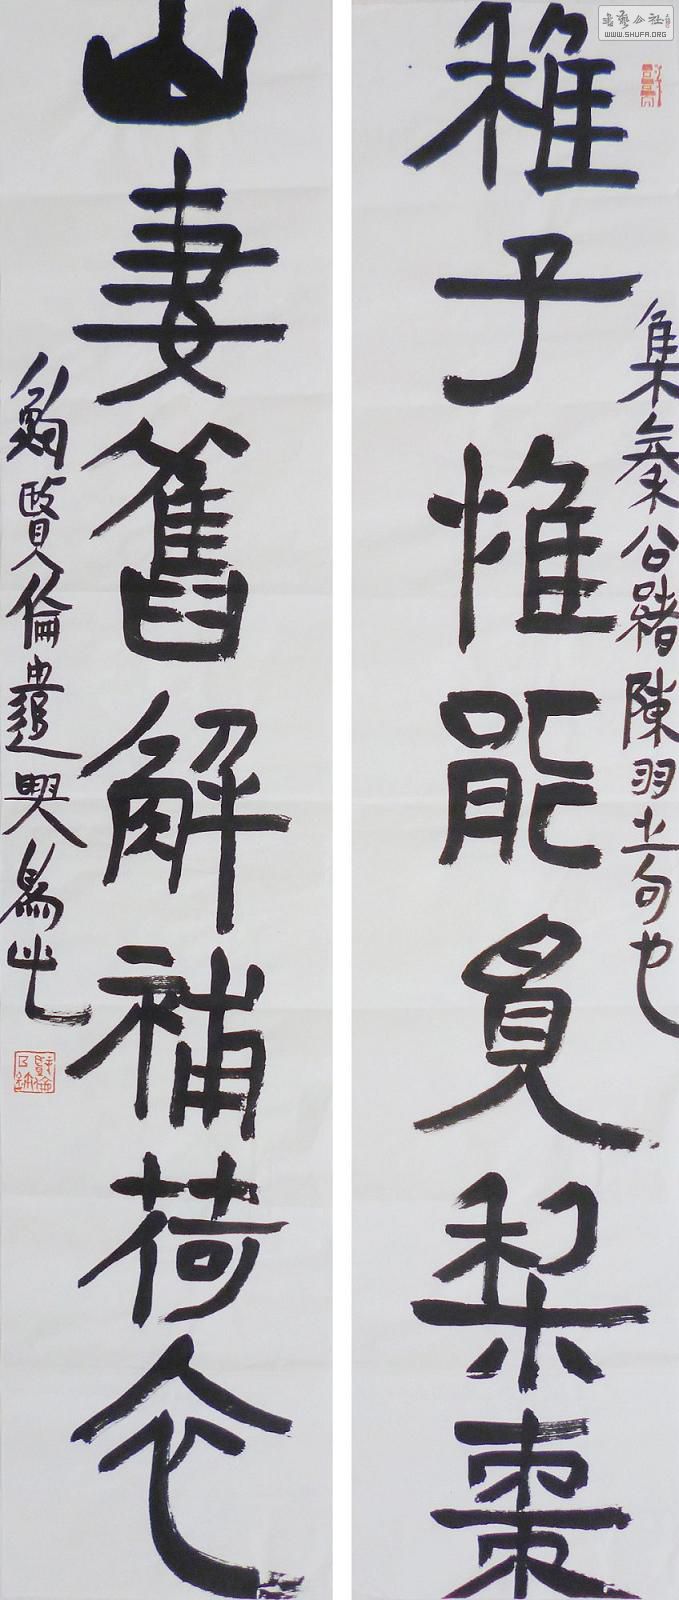 書藝公社
WWW.SHUFA.ORG
稚子惟能覓梨棗
集秦公緒陳羽之句也
山妻舊解補荷衣
鮑賢倫遣興寫此